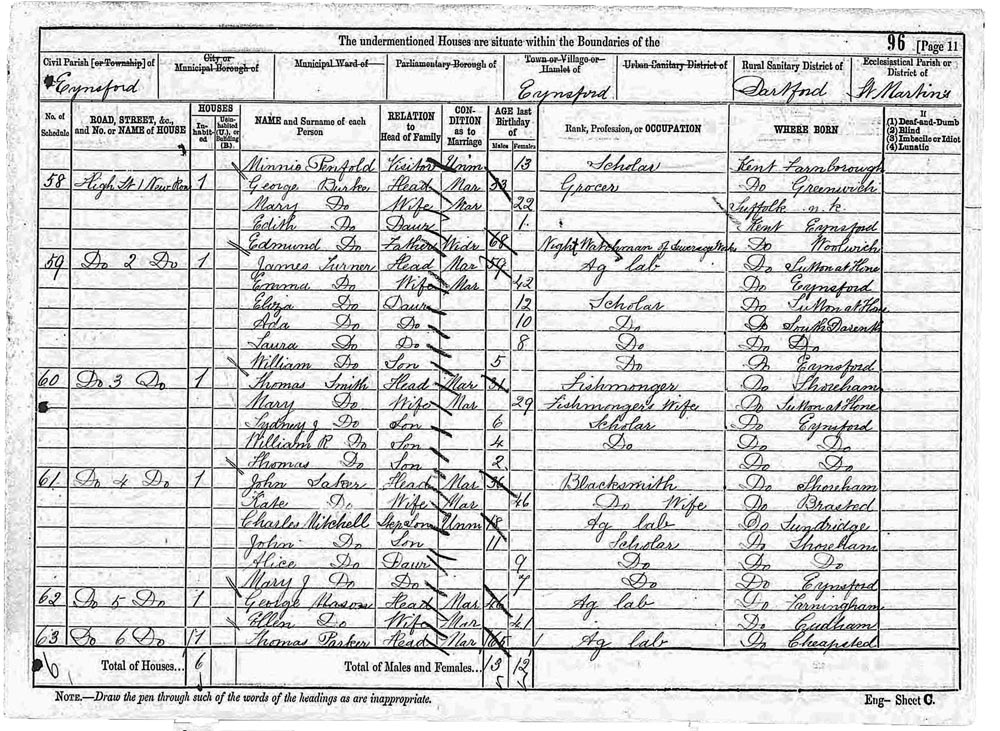 The undermentioned Houses are situate within the Boundaries of the 96 [Page 11
Civil Parish [or Township] of City or Municipal Borough of Municipal Ward of Parliamentary Borough of Town or Village or Hamlet of Urban Sanitary District of Rural Sanitary District of Ecclesiastical Parish or District of
Eynsford Eynsford Dartford St Martins
No. of Schedule ROAD, STREET, &c., and No. or NAME of HOUSE HOUSES Inhabited Uninhabited (U.), or Building (B.) NAME and Surname of each Person RELATION to Head of Family CONDITION as to Marriage AGE last Birthday of Males Females Rank, Profession, or OCCUPATION WHERE BORN If (1) Deaf-and-Dumb (2) Blind (3) Imbecile or Idiot (4) Lunatic
Minnie Penfold Visitor Unm 13 Scholar Kent Farnborough
58 High St 1 New Row 1 George Burke Head Mar 33 Grocer Do Greenwich
Mary Do Wife Mar 22 Suffolk n.k
Edith Do Daur 1 Kent Eynsford
Edmund Do Father Widr 68 Night Watchman of Sewerage Works Do Woolwich
59 Do 2 Do 1 James Turner Head Mar 59 Ag lab Do Sutton at Hone
Emma Do Wife Mar 42 Do Eynsford
Eliza Do Daur 12 Scholar Do Sutton at Hone
Ada Do Do 10 Do Do South Darenth
Laura Do Do 8 Do Do Do
William Do Son 5 Do Do Eynsford
60 Do 3 Do 1 Thomas Smith Head Mar Fishmonger Do Shoreham
Mary Do Wife Mar 29 Fishmongers Wife Do Sutton at Hone
Sydney J Do Son 6 Scholar Do Eynsford
William R Do Son 4 Do Do Do
Thomas Do Son 2 Do Do
61 Do 4 Do 1 John Saker Head Mar 36 Blacksmith Do Shoreham
Kate Do Wife Mar 46 Do Wife Do Brasted
Charles Mitchell Step Son Unm 18 Ag lab Do Sundridge
John Do Son 11 Scholar Do Shoreham
Alice Do Daur 9 Do Do Do
Mary J Do Do 7 Do Do Eynsford
62 Do 5 Do 1 George Mason Head Mar 46 Ag lab Do Farningham
Ellen Do Wife Mar 41 Do Cudham
63 Do 6 Do 1 Thomas Parker Head Mar 65 Ag lab Do Cheapsted
6 Total of Houses... 6 Total of Males and Females... 13 12
NOTE.—Draw the pen through such of the words of the headings as are inappropriate. Eng— Sheet C.